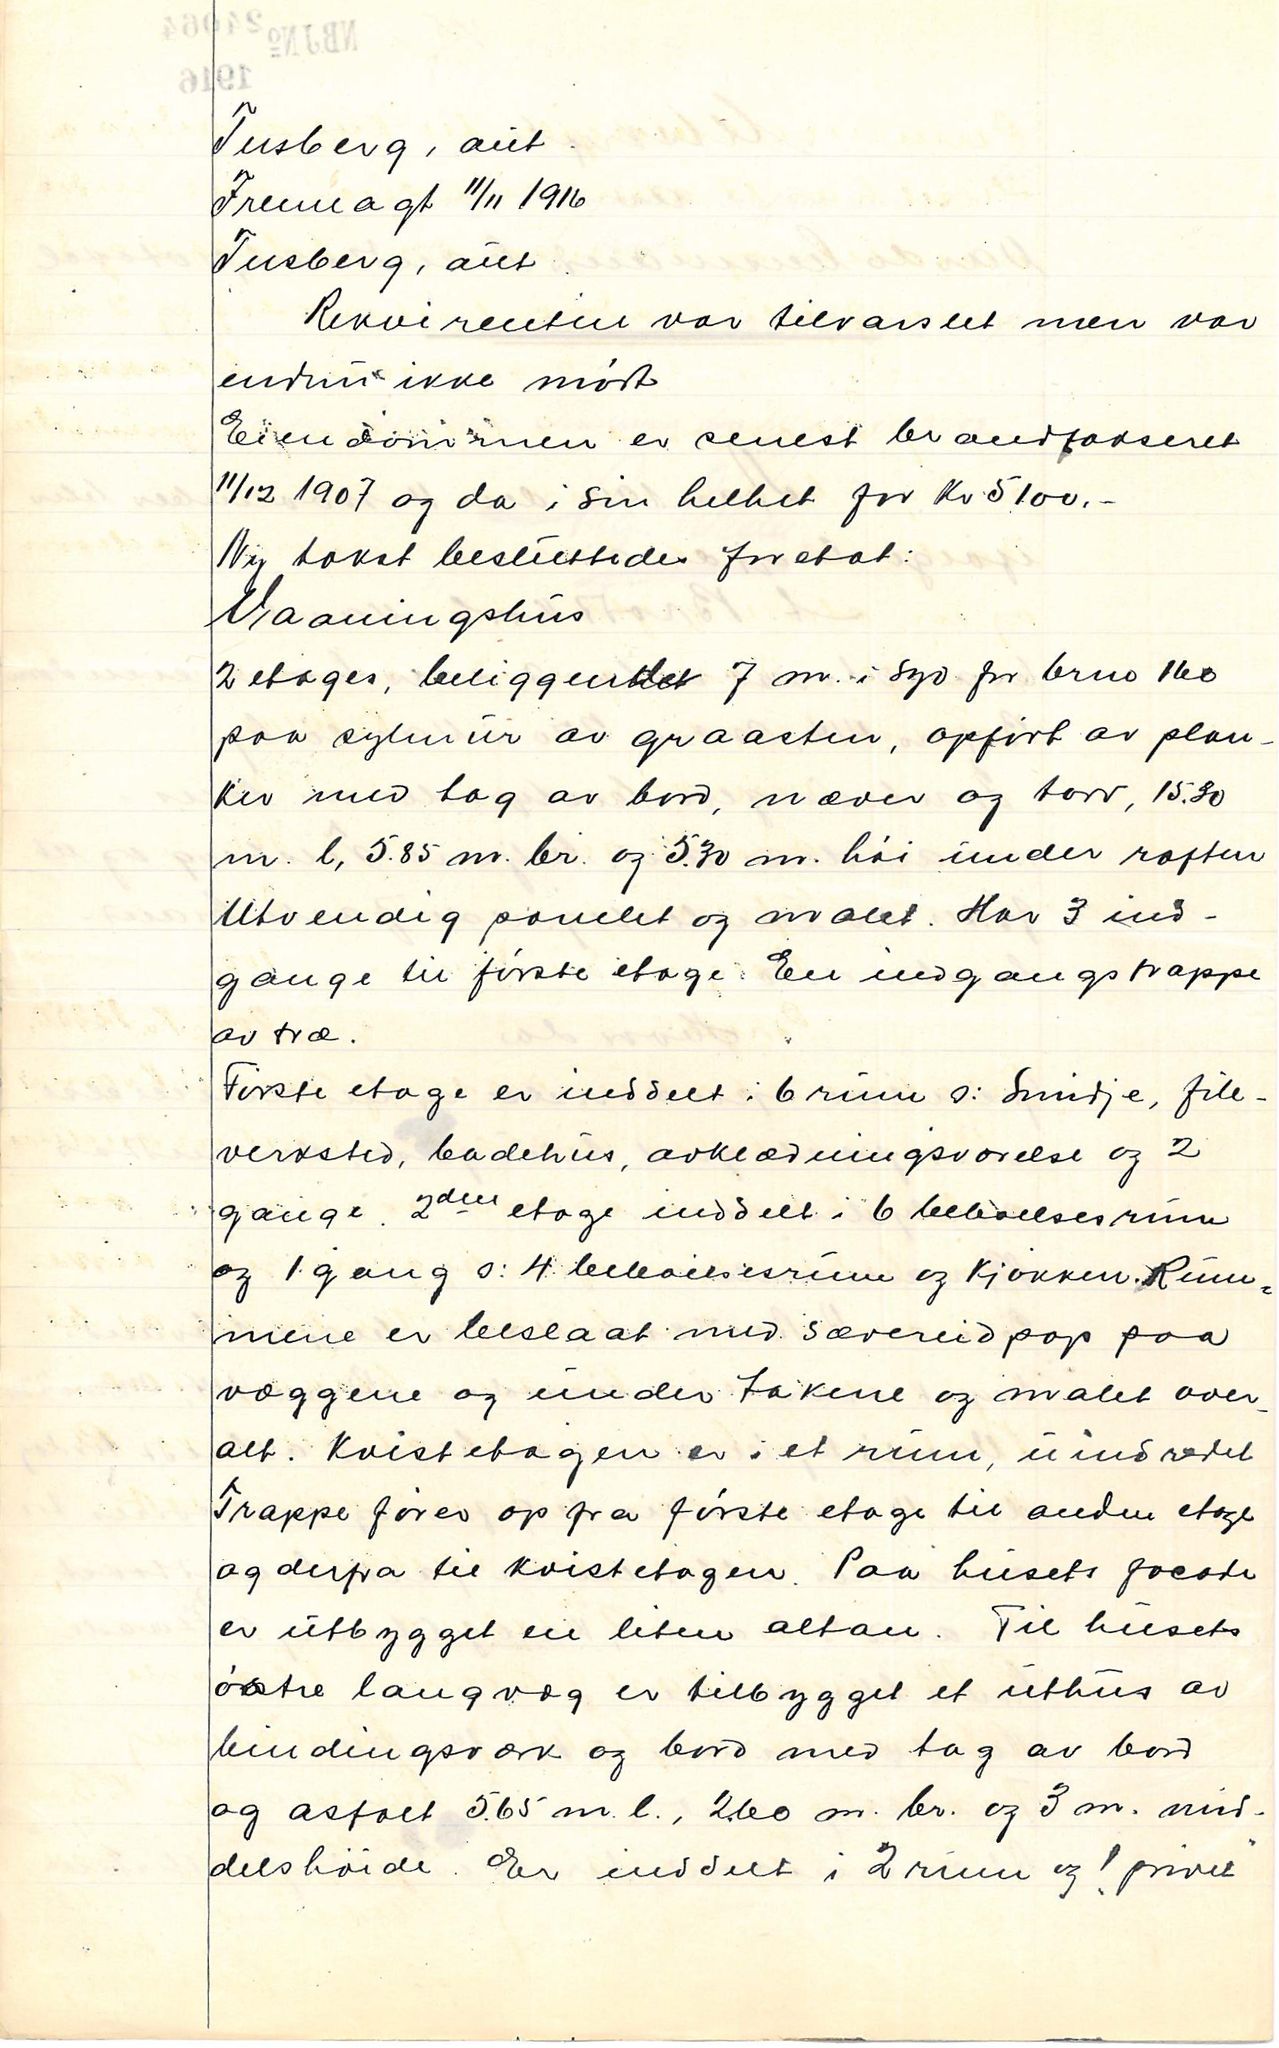 Tusberg, aut.
Fremlagt 11/11 1916
Tusberg, aut.
Rekvirenten var tilvarslet men var
endnu ikke mødt
Eiendommen er senest brandtakseret
11/12 1907 og da i sin helhet for Kr 5100.-
Ny takst besluttedes foretat:
Vaaningshus
2 etages, beliggendet 7 m. i syd for brno 160
paa sylmur av graasten, opført av plan-
ker med tag av bord, næver og torv, 15.30
m. l, 5.85 m. br. og 5.30 m. høi under raften
Utvendig panelet og malet. Har 3 ind-
gange til første etage. En indgangstrappe
av træ.
Første etage er inddelt i 6 rum o: Smidje, file-
verksted, badehus, avklædningsværelse og 2
gange. 2den etage inddelt i 6 beboelsesrum
og 1 gang o: 4 beboelsesrum og kjøkken. Rum-
mene er beslaat med sævereidpap paa
væggene og under takene og malet over-
alt. Kvistetagen er i et rum, uindredet
Trappe fører op fra første etage til anden etage
og derfra til kvistetagen. Paa husets facade
er utbygget en liten altan. Til husets
østre langvæg er tilbygget et uthus av
bindingsverk og bord med tag av bord
og asfalt 5.65 m. l., 2.60 m. br. og 3 m. mid-
delshøide. Er inddelt i 2 rum og 1 privet
NBJ No 24064
1916